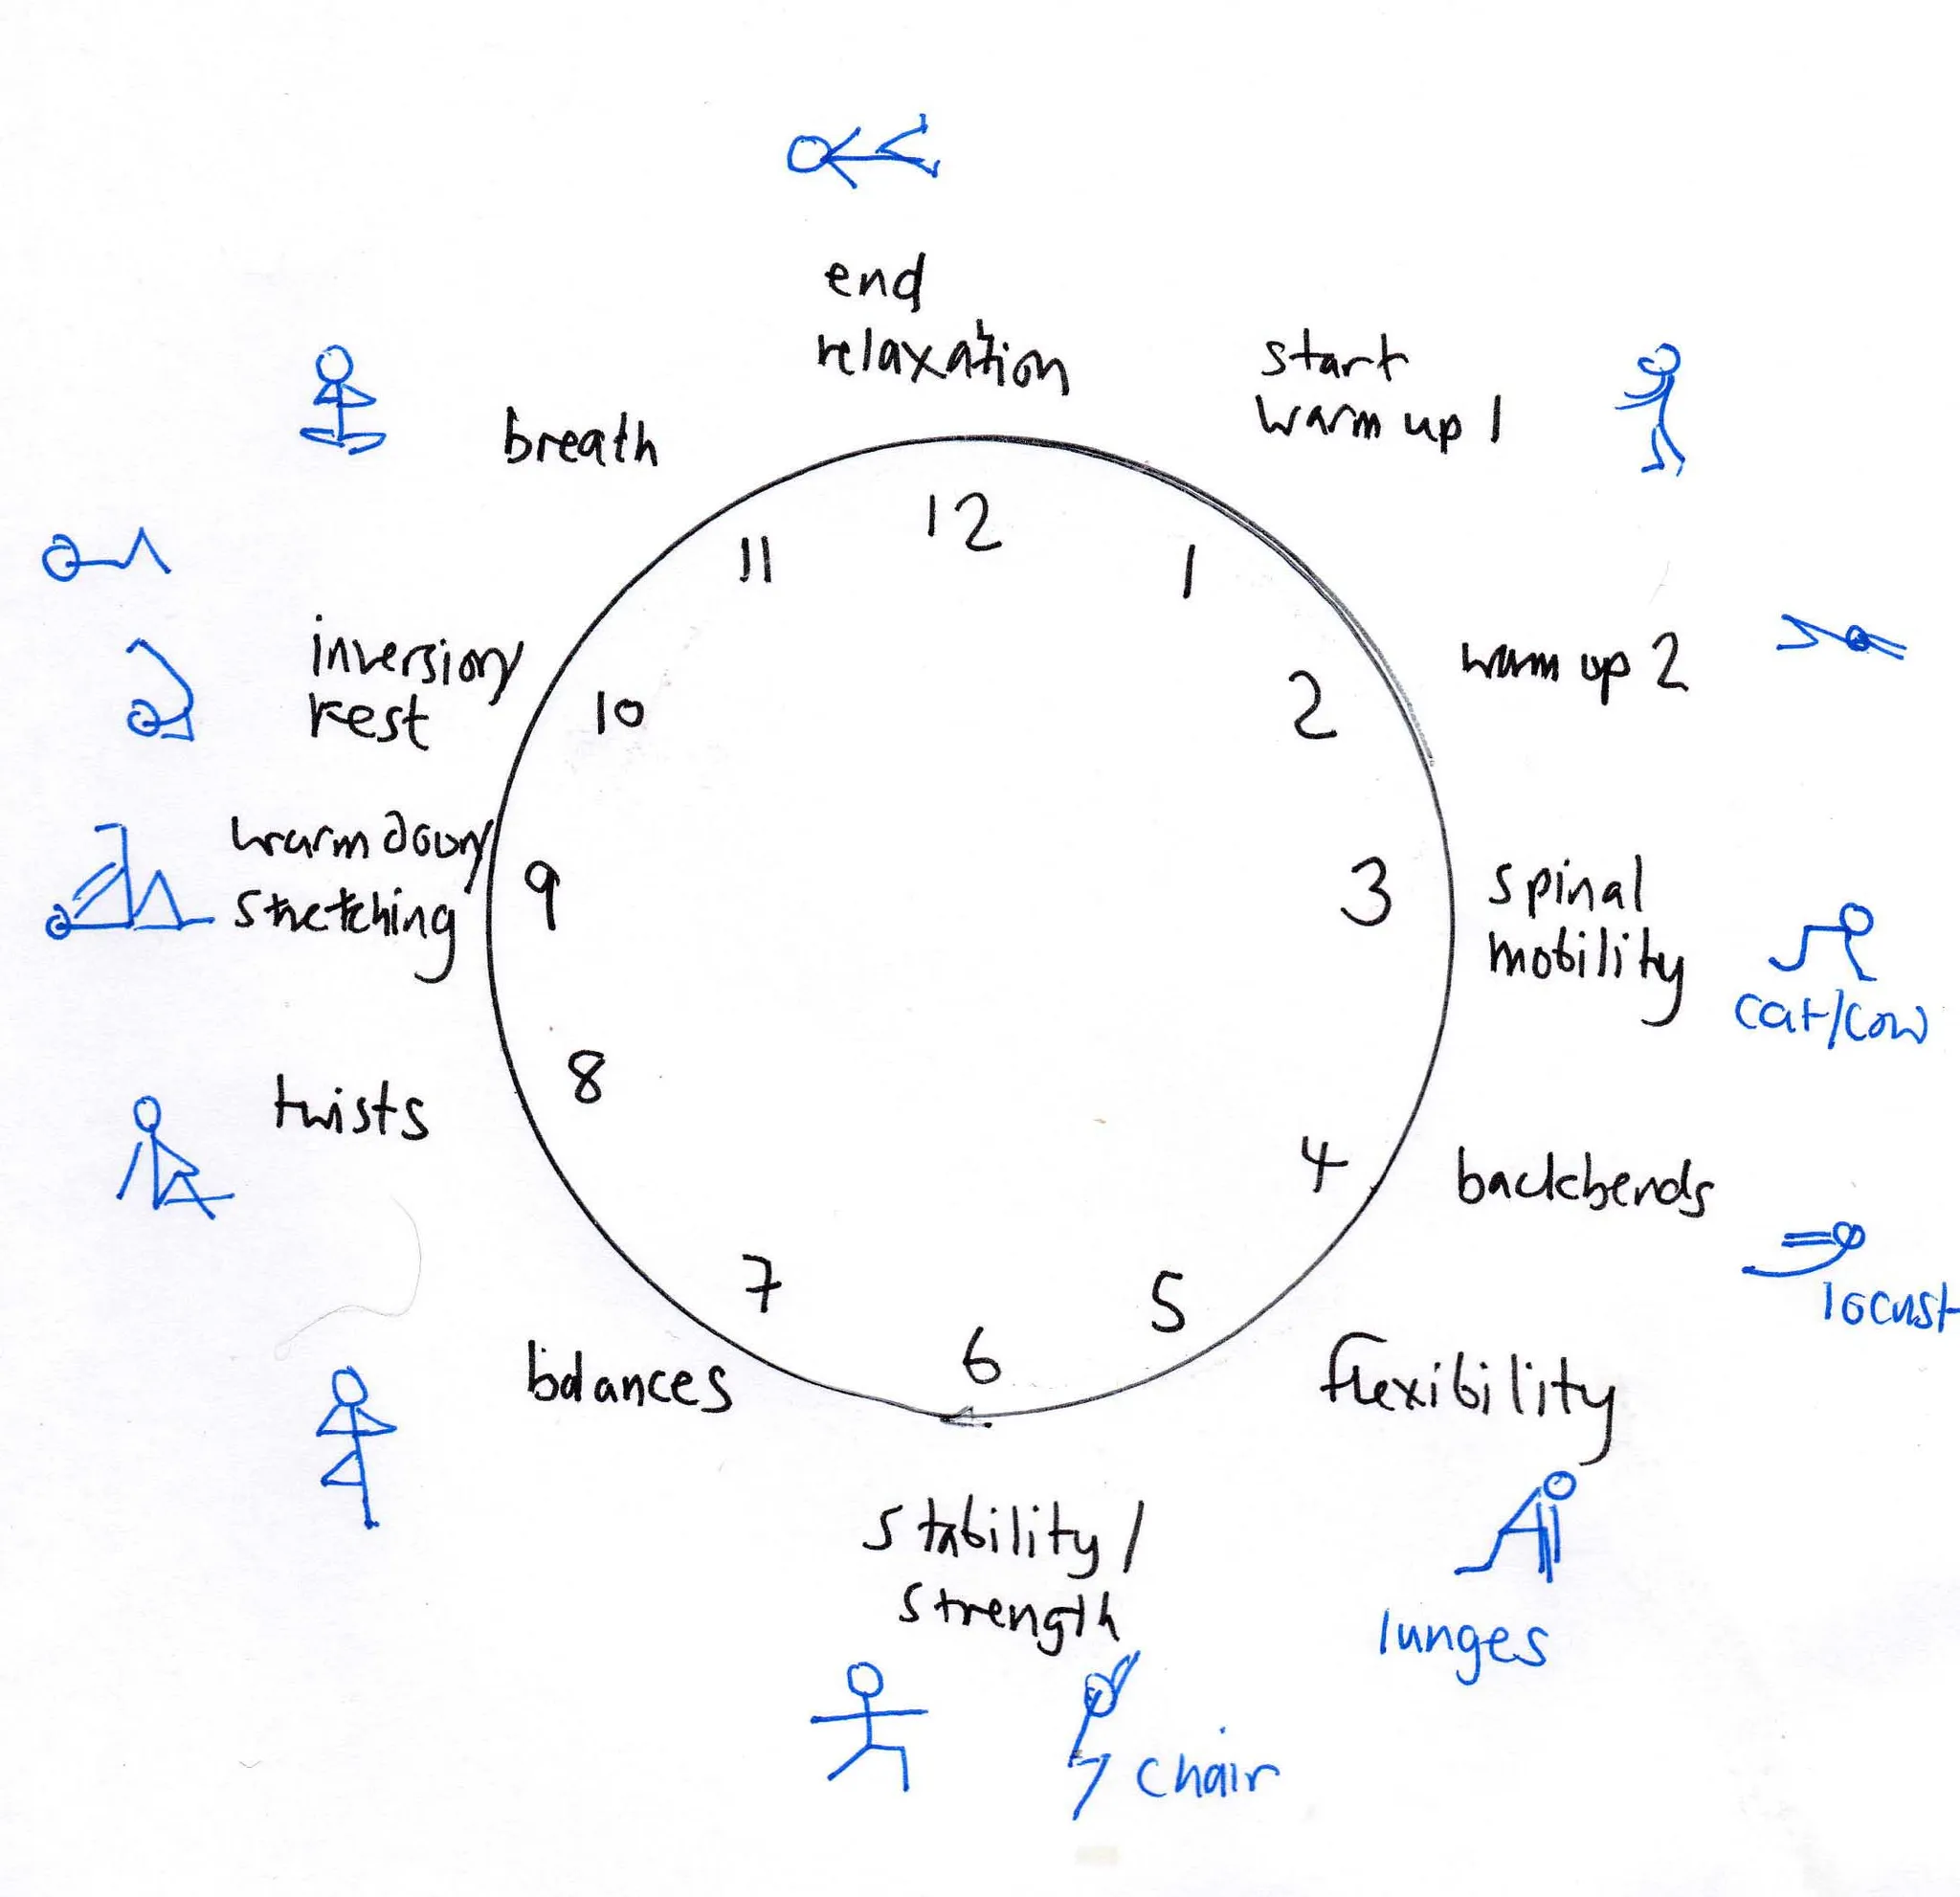 end
relaxation
start
warm up 1
breath
12
11
1
inversion/
rest
10
warm up 2
2
warm down/
stretching
9
3
spinal
mobility
cat/cow
8
twists
4
backbends
locust
7
5
6
balances
flexibility
stability/
strength
lunges
chair